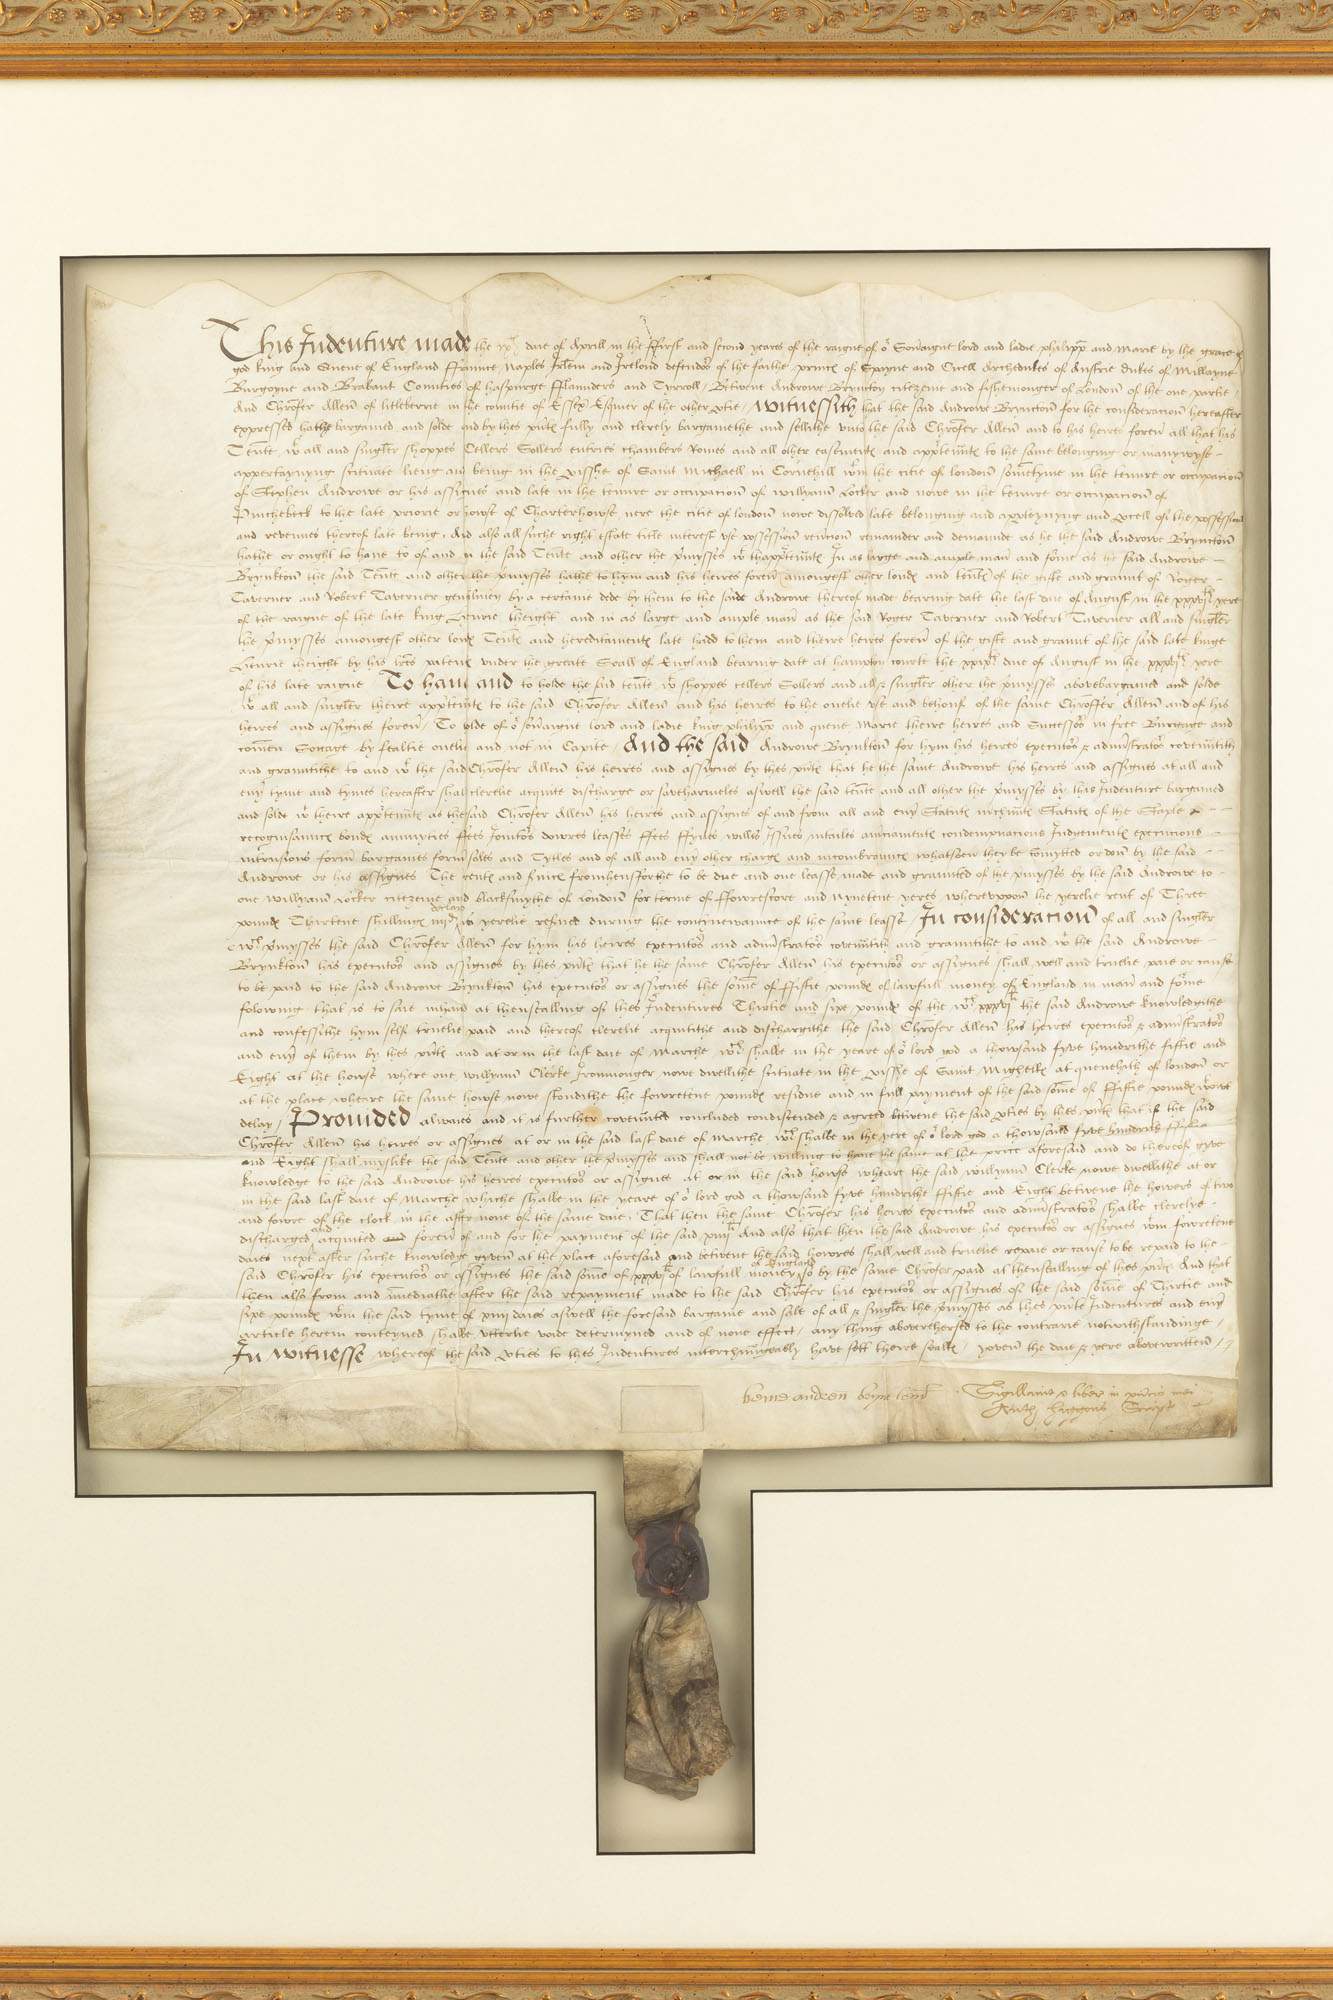 This Indenture made the daie of Aprill in the ffirst and second yeres of the raigne of or Soveraigne lord and ladie philipp and Marie by the grace of
god king and Quene of England ffraunce Naples Jrlem and Jrelond defendors of the faithe princes of Spayne and Cicell Archedukes of Austrie dukes of Millayne
Burgoyne and Brabant Counties of haspurge fflaunders and Tyrroll / Betwene Androwe Bryncton citezeine and fishemonger of London of the one partie /
And Chrofer Allen of litleberrie in the countie of Essex Esquier of the other ptie / Witnessith that the said Androwe Bryncton for the consideracion hereafter
expressed hathe bargained and solde and by thes pnts fully and clerely bargainethe and sellithe unto the said Chrofer Allen and to his heires forever all that his
Tente wt all and singler shoppes Cellers Sollers entries chambers Romes and all other easements and apptennts to the same belonging or in any wyse
appertaynyng scituate lieng and being in the pisshe of Saint Michaell in Cornehill wtin the citie of london sometyme in the tenure or occupacion
of Stephen Androwe or his assignes and late in the tenure or occupacion of willyam Locker and nowe in the tenure or occupacion of
Pinchebeck to the late priorie or howse of Charterhowse nere the citie of london nowe dissolved late belonging and apperteynyng and pcell of the possessions
and revenues thereof late being / And also all suche right estate title interest use possession revercion remainder and demaunde as he the said Androwe Bryncton
hathe or ought to have to of and in the said Tente and other the pmysses wt thapptennts In as large and ample maner and forme as the said Androwe
Brynkton the said Tente and other the pmysses hathe to hym and his heires forever amongest other londs and tents of the gifte and graunt of Roger
Taverner and Robert Taverner gentilmen by a certaine dede by them to the saide Androwe thereof made bearing date the last daie of August in the yere
of the raigne of the late king Henrie theight and in as large and ample maner as the said Roger Taverner and Robert Taverner all and singler
the pmysses amongest other londs Tents and hereditaments late hadd to them and theire heires forever of the gifte and graunt of the said late kinge
Henrie theight by his lres patents under the greate Seall of England bearing date at hampton courte the daie of August in the yere
of his late raigne To have and to holde the said tente wt shoppes cellers Sollers and all & singler other the pmysses abovebargained and solde
wt all and singler theire apptennts to the said Chrofer Allen and his heires to the onelie use and behouf of the same Chroffer Allen and of his
heires and assignes forever / To holde of or soveraigne lord and ladie king philipp and quene Marie theire heires and Successors in free Burgage and
comen Soccage by fealtie onelie and not in Capite / And the said Androwe Brynkton for hym his heires executors & admstrators covenntith
and grauntithe to and wt the said Chrofer Allen his heires and assignes by thes pnts that he the same Androwe his heires and assignes at all and
every tyme and tymes hereafter shal clerelie acquite discharge or saveharmeles aswell the said tente and all other the pmysses by this Indenture bargained
and solde wt theire apptennts as the said Chrofer Allen his heires and assignes of and from all and every Statuts mrchnts Statuts of the Staple &
recognisaunces bonds annuyties ffees Joyntors dowres leasses ffees ffynes willes Issues intailes amciaments condempnacions Judgements execucions
intrusions former bargaines former sales and Tytles and of all and every other charges and incombrounces whatsoever they be comytted or don by the said
Androwe or his assignes The rents and services fromhensforthe to be due and one leasse made and graunted of the pmysses by the said Androwe to
one willyam Locker citezeine and blacksmythe of London for terme of ffowrescore and nynetene yeres whereuppon the yerelie rent of Three
pounds Thirtene shillings iiijd is yerelie reserved during the contynewaunce of the same leasse / In consideracion of all and singler
wch pmysses the said Chrofer Allen for hym his heires executors and admstrators covenntith and grauntithe to and wt the said Androwe
Brynkton his executors and assignes by thes pnts that he the same Chrofer Allen his executors or assignes shall well and truelie paie or cause
to be paid to the said Androwe Brynkton his executors or assignes the some of ffiftie pounds of lawfull money of England in maner and forme
folowing that is to saie in hand at thensealling of thes Indentures Thirtie and sixe pounds of the wch the said Androwe knowledgithe
and confessithe hym self truelie paid and thereof clerelie acquitithe and dischargithe the said Chrofer Allen his heires executors & admstrators
and every of them by thes pnts and at or in the last daie of Marche wch shalbe in the yeare of or lord god a thowsand fyve hundrithe fiftie and
Eight at the howse where one willyam Clerke Jronmonger nowe dwellithe scituate in the pisshe of Saint Mighells at quenehith of london or
at the place wheare the same howse nowe stondithe the fowretene pounds residue and in full payment of the said some of ffiftie pounds wtowt
delay / Provided alwaies and it is further covennted concluded condiscended & agreed betwene the said pties by thes pnts that if the said
Chrofer Allen his heires or assignes at or in the said last daie of Marche wch shalbe in the yere of or lord god a thowsand fyve hundrith ffiftie
and Eight shall myslike the said Tente and other the pmysses and shall not be willing to have the same at the price aforesaid and do thereof gyve
knowledge to the said Androwe his heires executors or assignes at or in the said howse wheare the said willyam Clerke nowe dwellithe at or
in the said last daie of Marche whiche shalbe in the yeare of or lord god a thowsand fyve hundrithe ffiftie and Eight betwene the howers of two
and fowre of the clock in the after none of the same daie / That then the same Chrofer his heires executors and admstrators shalbe clerelye
discharged and acquited forever of and for the payment of the said And also that then the said Androwe his executors or assignes wtin fowretene
daies next after suche knowledge gyven at the place aforesaid and betwene the said howres shall well and truelie repaie or cause to be repaid to the
said Chrofer his executors or assignes the said some of of lawfull money of England so by the same Chrofer paid at thensealling of thes pnts And that
then also from and imediathe after the said repayment made to the said Chrofer his executors or assignes of the said some of Thirtie and
sixe pounds wtin the said tyme of xiiij daies aswell the foresaid bargaine and sale of all & singler the pmysses as thes pnte Indentures and every
article herein conteyned shalbe utterlie voide determyned and of none effect / any thing aboverehersed to the contrarie notwithstandinge /
In witnesse whereof the said pties to thes Indentures interchaungeably have sett theire sealls / yoven the daie & yere abovewritten /